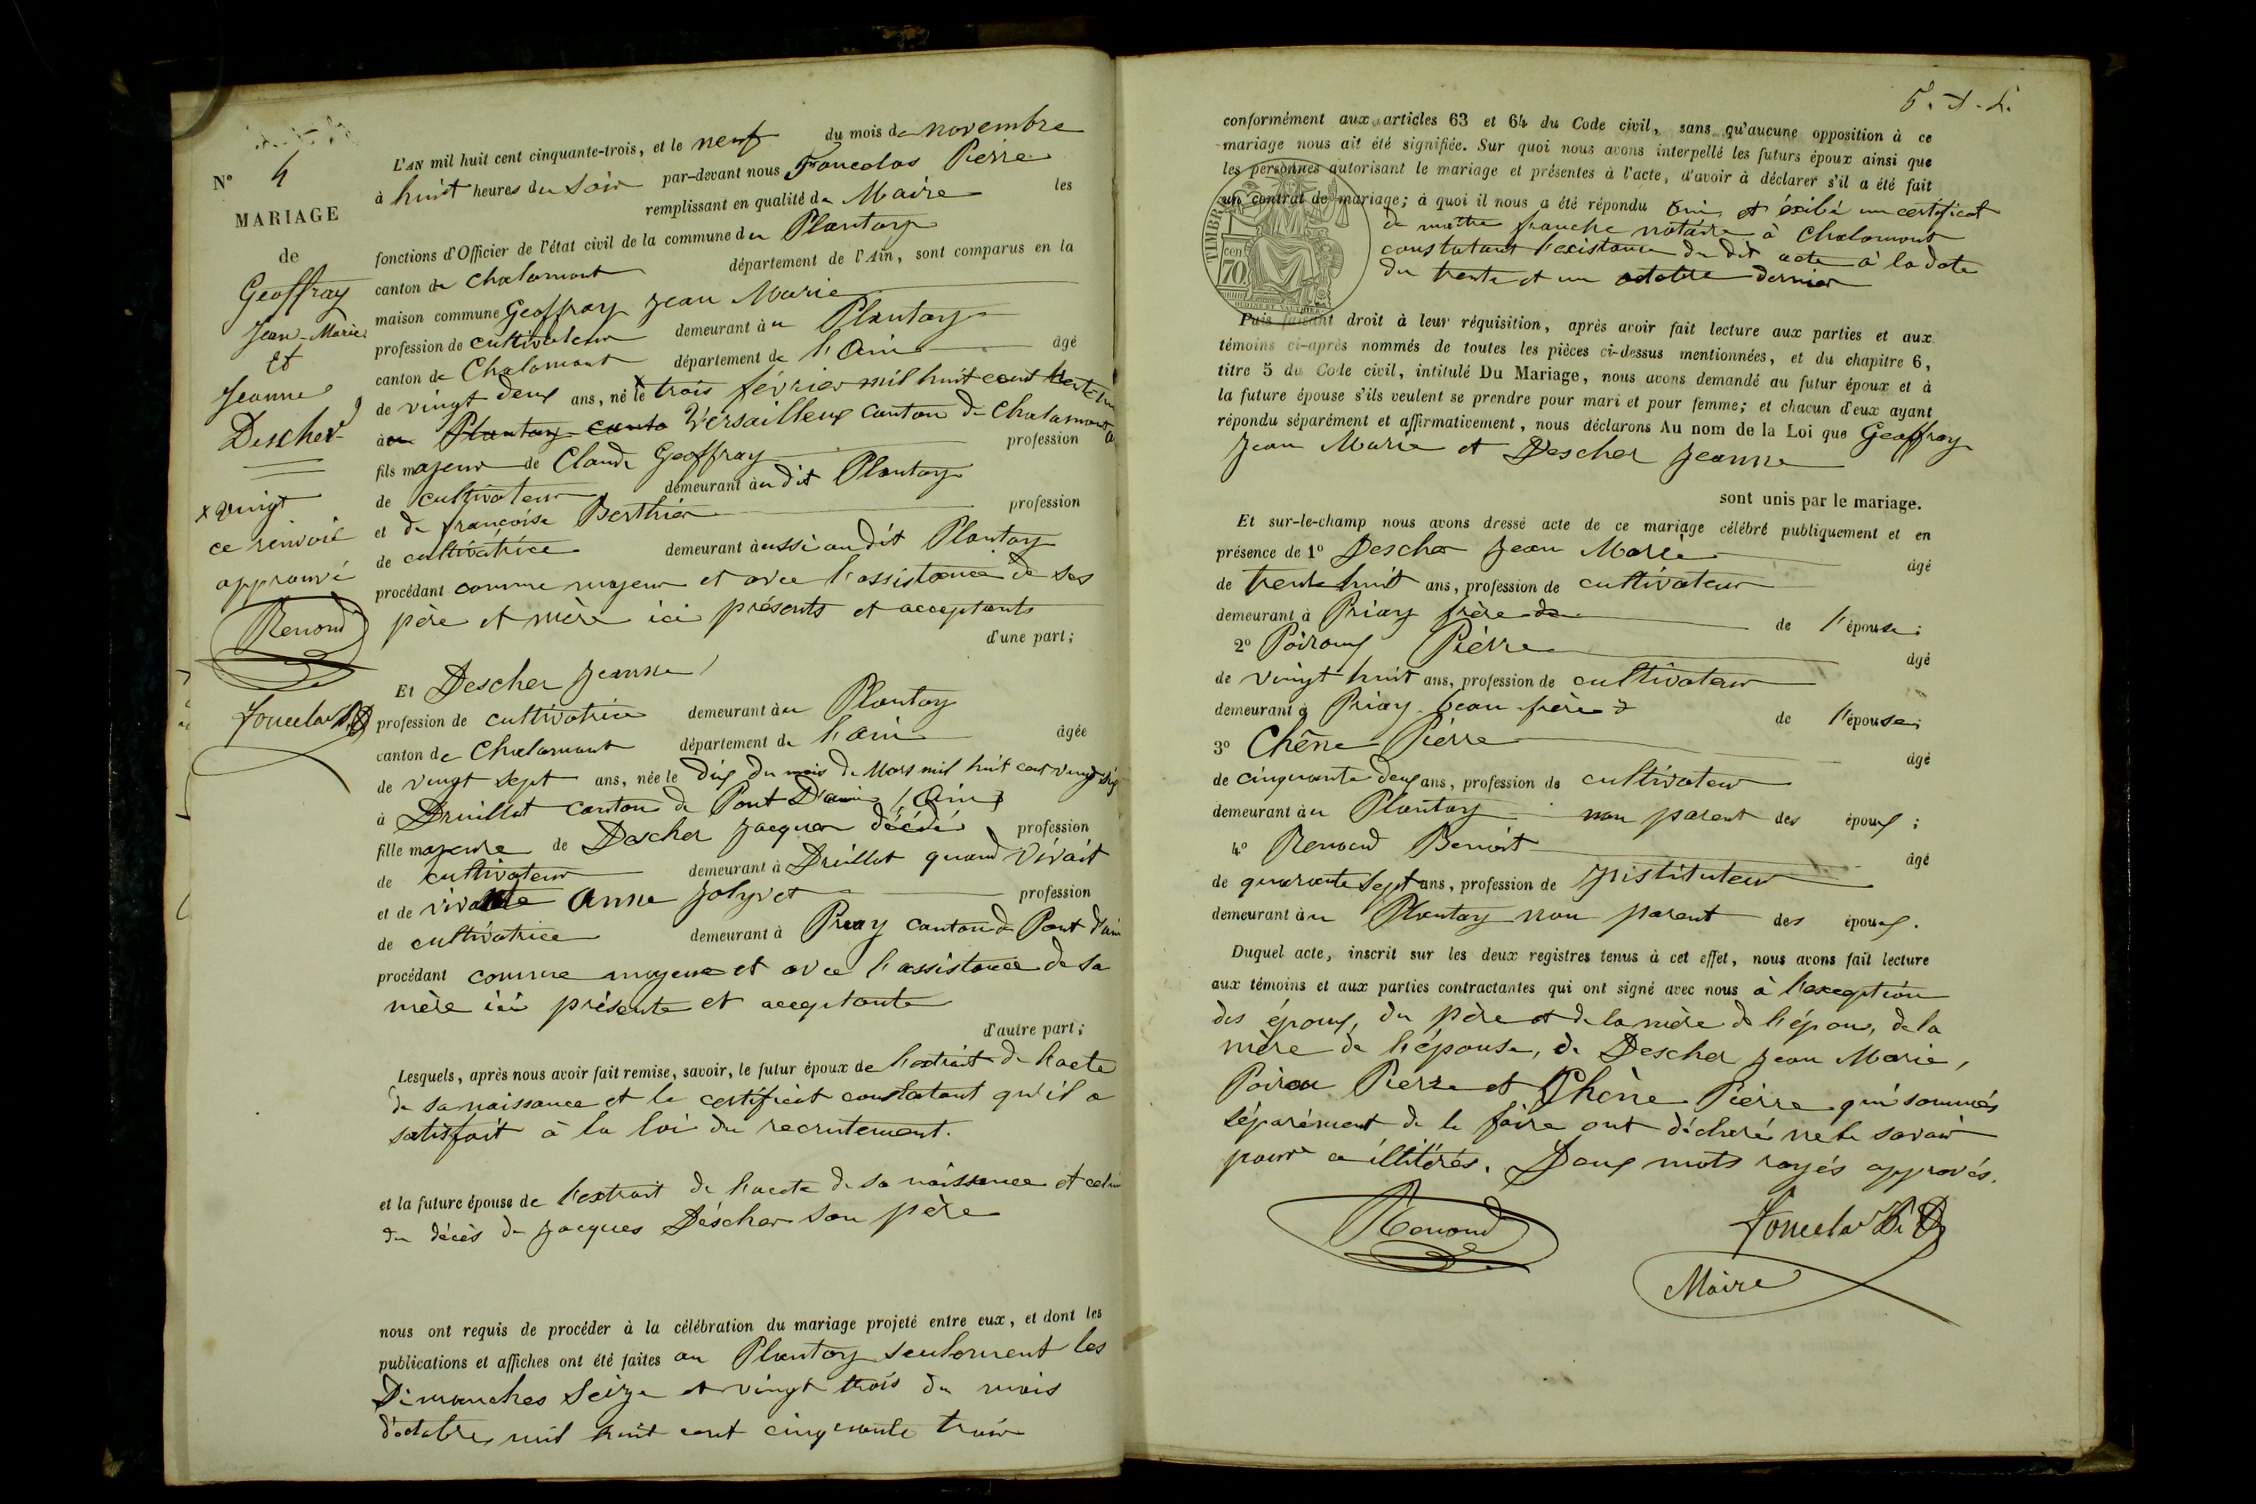 N° 4
MARIAGE
de
Geoffray
Jean-Marie
Et
Jeanne
Descher
x vingt
ce renvoie
approuvé
Renoud
L'AN mil huit cent cinquante-trois, et le neuf du mois de novembre
à huit heures du soir par-devant nous Pierre
remplissant en qualité de Maire les
fonctions d'Officier de l'état civil de la commune du Plantay
canton de Chalamont département de l'Ain, sont comparus en la
maison commune Geoffray Jean Marie
profession de cultivateur demeurant au Plantay
canton de Chalamont département de l'ain âgé
de vingt deux ans, né le x trois février mil huit cent trente un
à au Plantay canto Versailleux canton de Chalamont
fils majeur de Claude Geoffray profession
de cultivateur demeurant au dit Plantay
et de françoise Berthier profession
de cultivatrice demeurant aussi au dit Plantay
procédant comme majeur et avec l'assistance de ses
père et mère ici présents et acceptants
d'une part;
Et Descher Jeanne
profession de cultivatrice demeurant au Plantay
canton de Chalamont département de l'ain âgée
de vingt sept ans, née le dix du mois de Mars mil huit cent vingt six
à Druillat canton de Pont D'ain (Ain)
fille majeure de Descher Jacques décédé profession
de cultivateur demeurant à Druillat quand vivait
et de vivante Anne Jolyvet profession
de cultivatrice demeurant à Priay canton de Pont d'ain
procédant comme majeure et avec l'assistance de sa
mère ici présente et acceptante
d'autre part;
Lesquels, après nous avoir fait remise, savoir, le futur époux de l'extrait de l'acte
de sa naissance et le certificat constatant qu'il a
satisfait à la loi du recrutement.
et la future épouse de l'extrait de l'acte de sa naissance et celui
du décès de Jacques Déscher son père
nous ont requis de procéder à la célébration du mariage projeté entre eux, et dont les
publications et affiches ont été faites au Plantay seulement les
Dimanches Seize et vingt trois du mois
d'octobre mil huit cent cinquante trois
conformément aux articles 63 et 64 du Code civil, sans qu'aucune opposition à ce
mariage nous ait été signifiée. Sur quoi nous avons interpellé les futurs époux ainsi que
les personnes autorisant le mariage et présentes à l'acte, d'avoir à déclarer s'il a été fait
un contrat de mariage; à quoi il nous a été répondu oui et éxibé un certificat
de maître franche notaire à Chalamont
constatant l'existance du dit acte à la date
du trente et un octobre dernier
TIMBRE
70
cen
Puis faisant droit à leur réquisition, après avoir fait lecture aux parties et aux
témoins ci-après nommés de toutes les pièces ci-dessus mentionnées, et du chapitre 6,
titre 5 du Code civil, intitulé Du Mariage, nous avons demandé au futur époux et à
la future épouse s'ils veulent se prendre pour mari et pour femme; et chacun d'eux ayant
répondu séparément et affirmativement, nous déclarons Au nom de la Loi que Geoffray
Jean Marie et Descher Jeanne
sont unis par le mariage.
Et sur-le-champ nous avons dressé acte de ce mariage célébré publiquement et en
présence de 1° Descher Jean Marie âgé
de trente huit ans, profession de cultivateur
demeurant à Priay frère de de l'épouse;
2° Poiroux Pierre âgé
de vingt huit ans, profession de cultivateur
demeurant à Priay beau frère de l'épouse;
3° Chêne Pierre âgé
de cinquante deux ans, profession de cultivateur
demeurant au Plantay non parent des époux;
4° Renoud Benoit âgé
de quarante sept ans, profession de Instituteur
demeurant au Plantay non parent des époux.
Duquel acte, inscrit sur les deux registres tenus à cet effet, nous avons fait lecture
aux témoins et aux parties contractantes qui ont signé avec nous à l'exception
des époux, du père et de la mère de l'époux, de la
mère de l'épouse, de Descher Jean Marie,
Poiroux Pierre et Chêne Pierre qui sommés
séparément de le faire ont déclaré ne le savoir
pour illitérés. Deux mots rayés approuvés.
Renoud
Maire